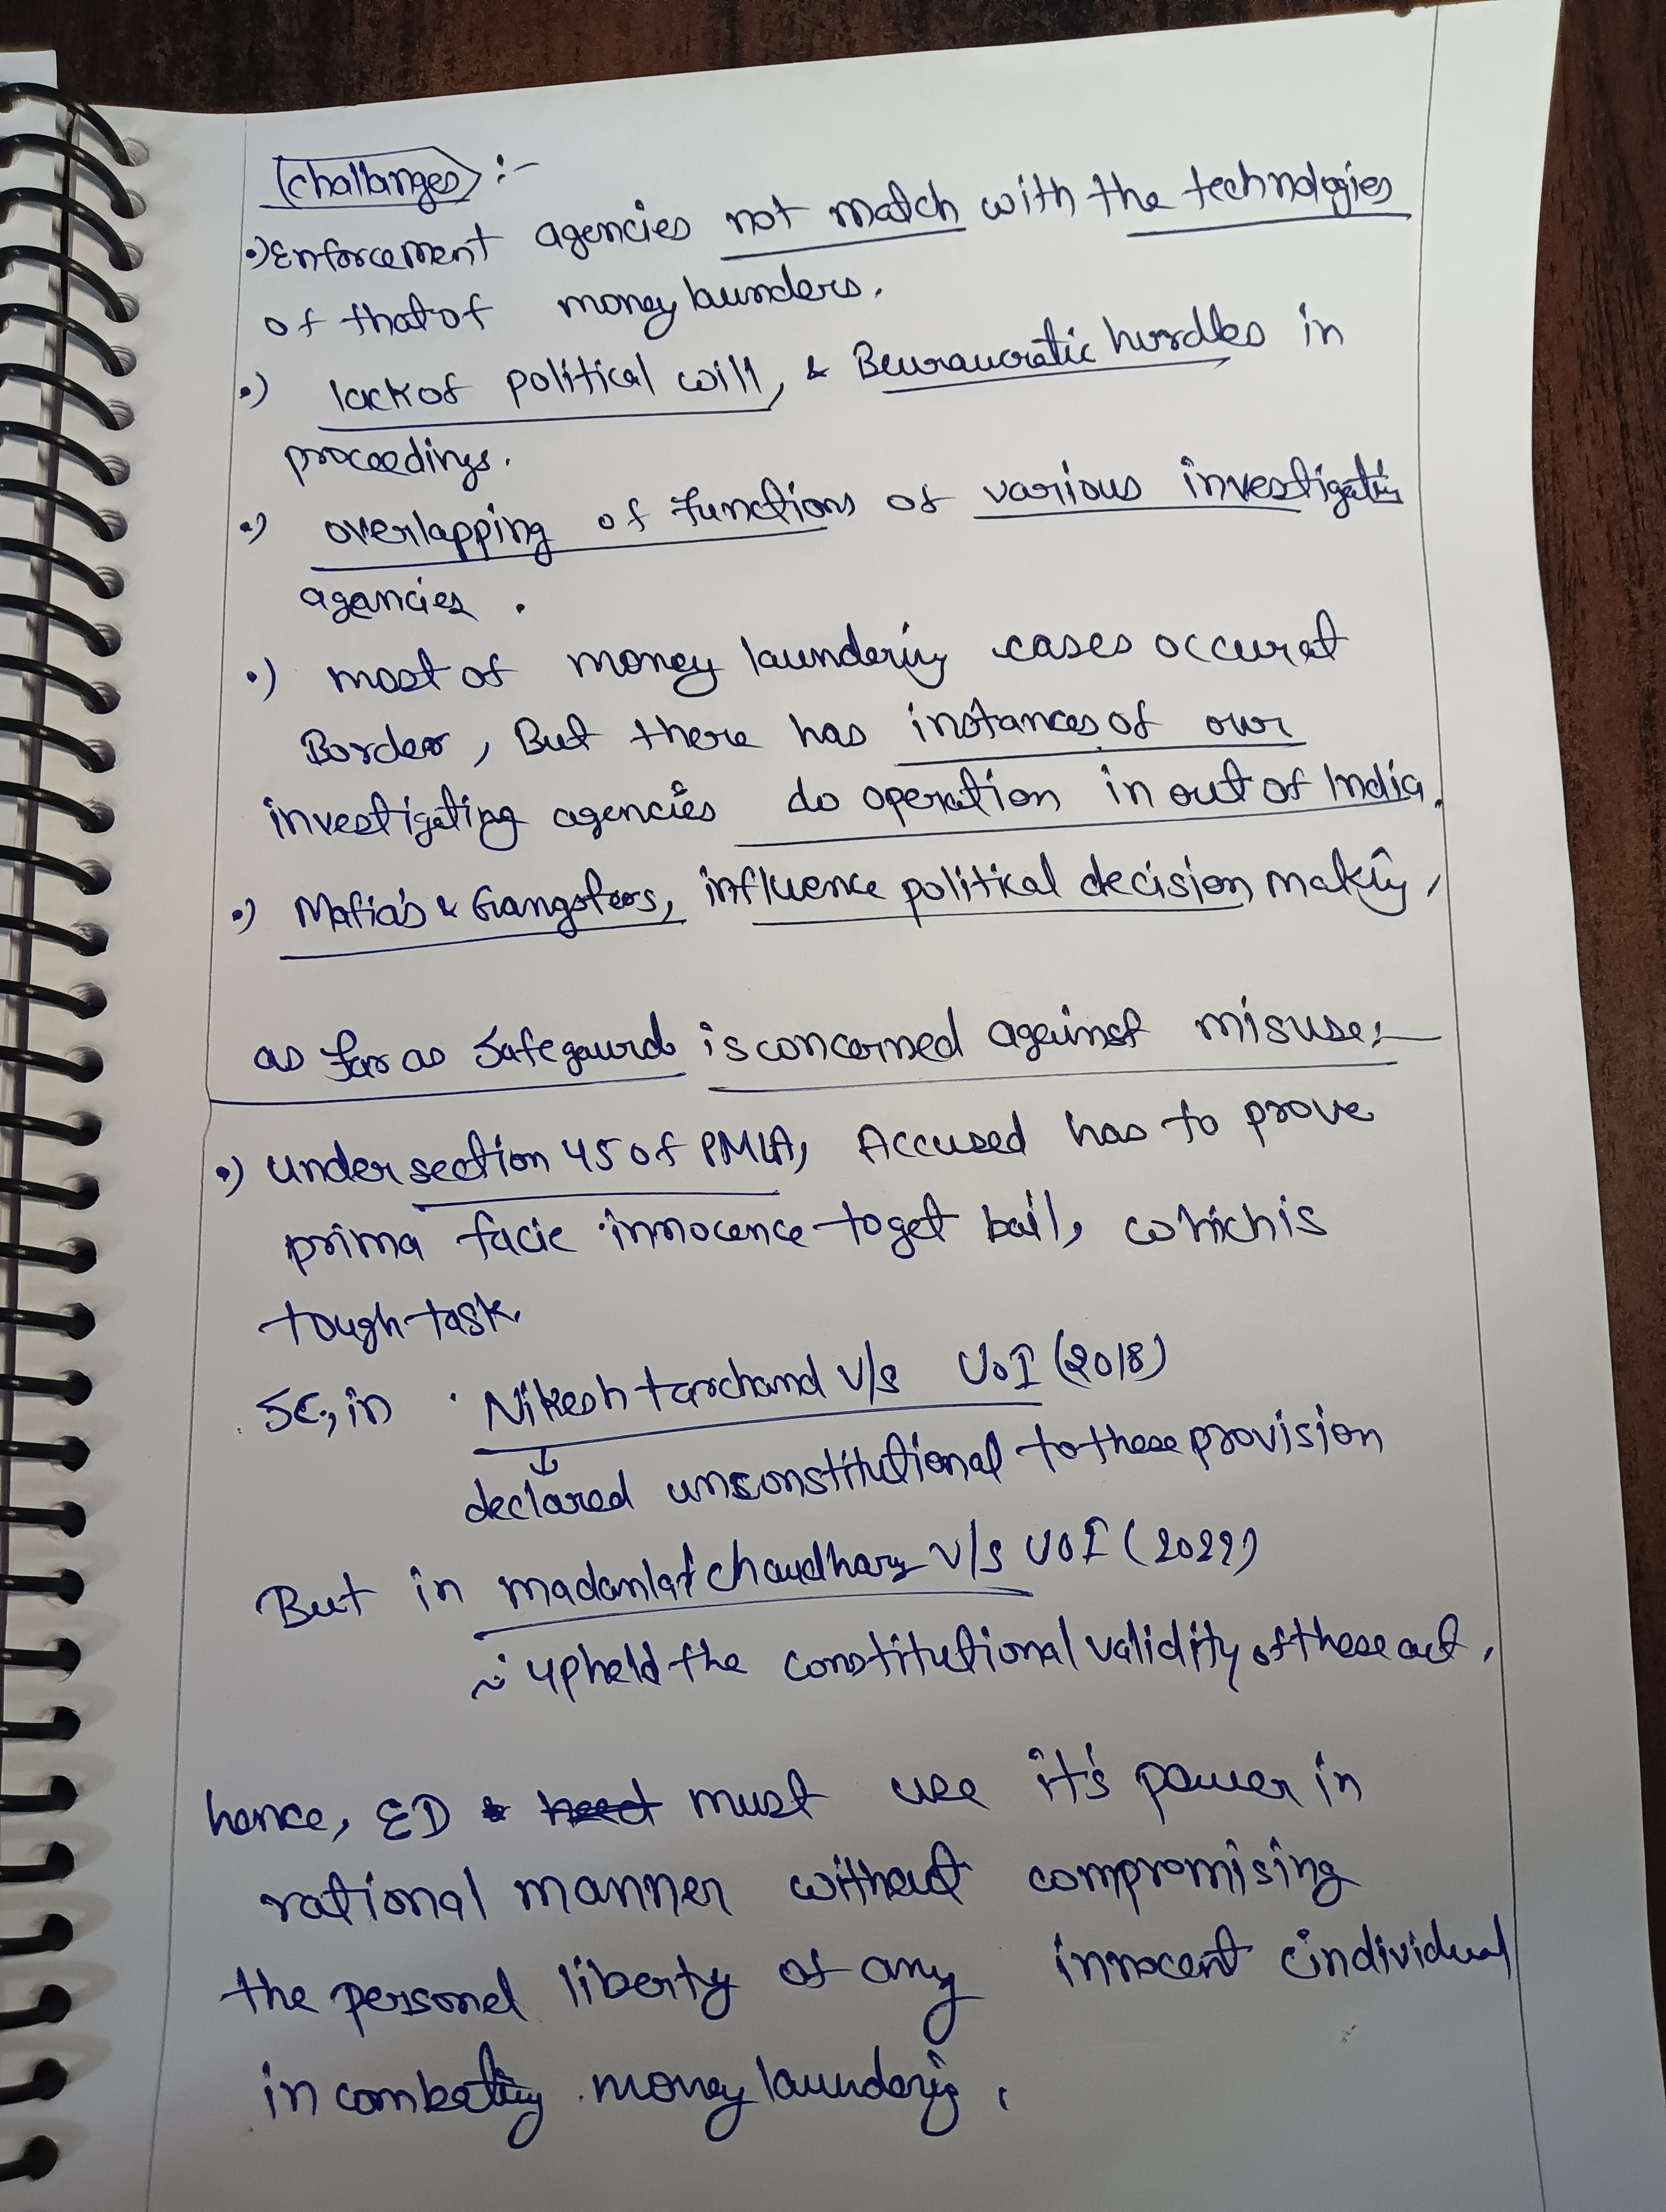 challanges :-
•) Enforcement agencies not match with the technologies
of that of money launders.
•) lack of political will, & Beuraucratic hurdles in
proceedings.
•) overlapping of functions of various investigating
agencies.
•) most of money laundering cases occur at
Border, But there has instances of our
investigating agencies do operation in out of India.
•) Mafia's & Gangsters, influence political decision making,
as far as safegaurds is concerned against misuse :-
•) under section 45 of PMLA, Accused has to prove
prima facie innocence to get bail, which is
tough task.
SC, in Nikesh tarchand v/s UOI (2018)
↓
declared unconstitutional to these provision
But in madanlal chaudhary v/s UOI (2022)
upheld the constitutional validity of these act.
hence, ED must use it's power in
rational manner without compromising
the personel liberty of any innocent individual
in combating money laundering.